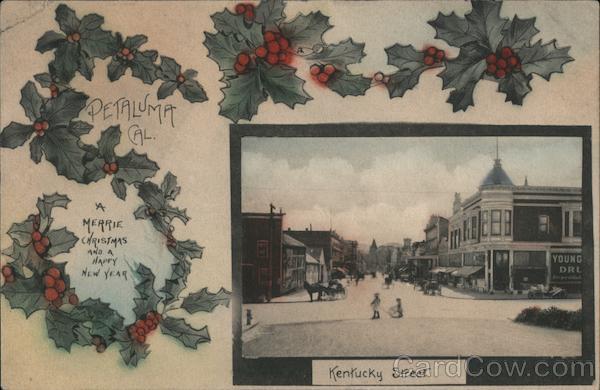 PETALUMA
CAL.
A
MERRIE
CHRISTMAS
AND A
HAPPY
NEW YEAR
YOUNG
DRU
Kentucky Street
CardCow.com